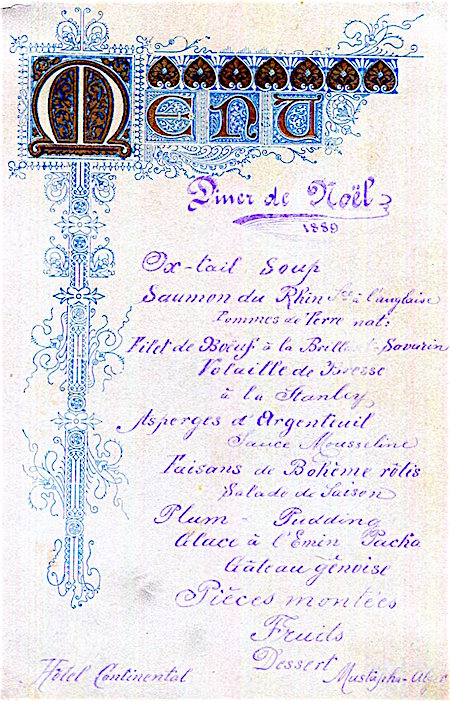 Menu
Diner de Noël
1889
Ox-tail Soup
Saumon du Rhin Sce à l'anglaise
Pommes de Terre nat:
Filet de Bœuf à la Brillat-Savarin
Volaille de Bresse
à la Stanley
Asperges d'Argenteuil
Sauce Mousseline
Faisans de Bohême rôtis
Salade de Saison
Plum-Pudding
Glace à l'Emin Pacha
Gâteau génoise
Pièces montées
Fruits
Dessert
Hôtel Continental
Mustapha-Alger